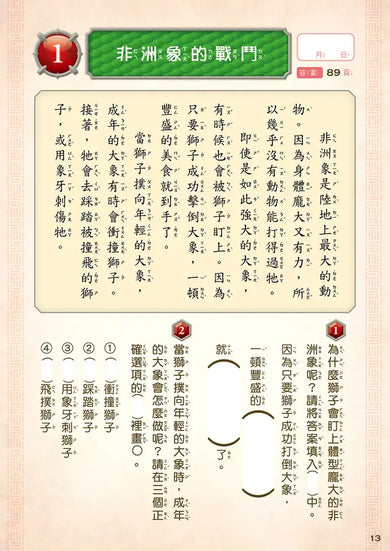 1
非洲象的戰鬥
月 日
答案 89 頁
非洲象是陸地上最大的動
物。因為身體龐大又有力,所
以幾乎沒有動物能打得過牠。
即使是如此強大的大象,
有時候也會被獅子盯上。因為
只要獅子成功擊倒大象,一頓
豐盛的美食就到手了。
當獅子撲向年輕的大象,
成年的大象有時會衝撞獅子。
接著,牠會去踩踏被撞飛的獅
子,或用象牙刺傷牠。
1
為什麼獅子會盯上體型龐大的非
洲象呢?請將答案填入( )中。
因為只要獅子成功打倒大象,
一頓豐盛的( )
就( )了。
2
當獅子撲向年輕的大象時,成年
的大象會怎麼做呢?請在三個正
確選項的( )裡畫○。
①( )衝撞獅子
②( )踩踏獅子
③( )用象牙刺獅子
④( )飛撲獅子
13